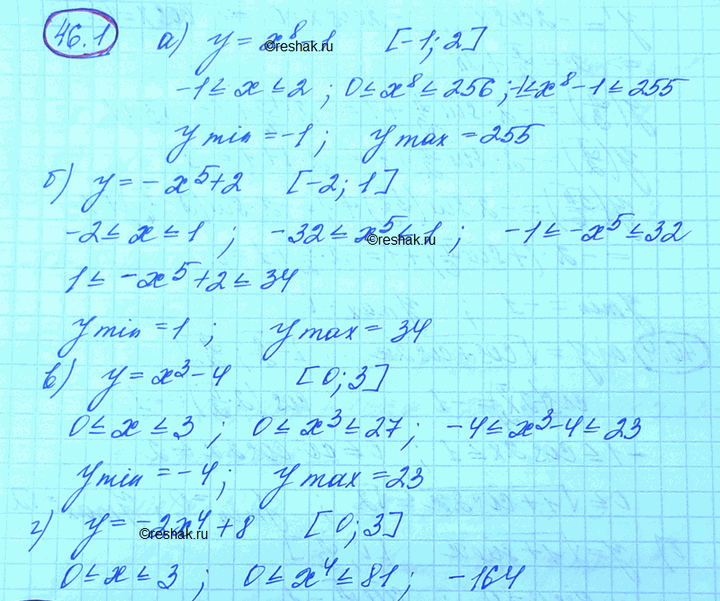 46.1 а) y = x⁸-1 [-1; 2]
-1 ≤ x ≤ 2 ; 0 ≤ x⁸ ≤ 256 ; -1 ≤ x⁸ - 1 ≤ 255
y min = -1 ; y max = 255
б) y = - x⁵ + 2 [-2; 1]
-2 ≤ x ≤ 1 ; -32 ≤ x⁵ ≤ 1 ; -1 ≤ -x⁵ ≤ 32
1 ≤ -x⁵ + 2 ≤ 34
y min = 1 ; y max = 34
в) y = x³ - 4 [0; 3]
0 ≤ x ≤ 3 ; 0 ≤ x³ ≤ 27 ; -4 ≤ x³ - 4 ≤ 23
y min = -4 ; y max = 23
г) y = -2x⁴ + 8 [0; 3]
0 ≤ x ≤ 3 ; 0 ≤ x⁴ ≤ 81 ; -164
©reshak.ru
©reshak.ru
©reshak.ru